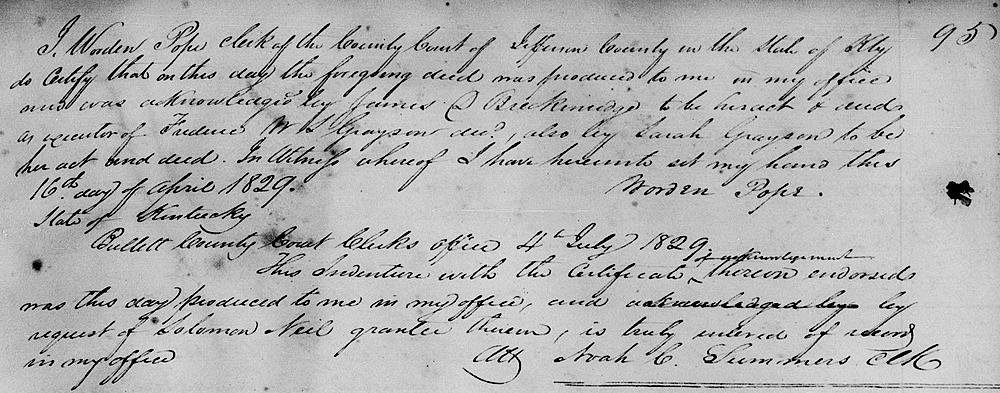 I, Worden Pope clerk of the County Court of Jefferson County in the State of Kty 95
do Certify that on this day the foregoing deed was produced to me in my office
and was acknowledged by James D Breckinridge to be his act & deed
as executor of Frederic W S Grayson decd, also by Sarah Grayson to be
her act and deed. In Witness whereof I have hereunto set my hand this
16th day of April 1829. Worden Pope.
State of Kentucky
Bullitt County Court Clerks office 4th July 1829
of acknowledgement
This Indenture with the Certificate ^ thereon endorsed
was this day produced to me in my office, and acknowledged by by
request of Solomon Neil grantee therein, is truly entered of record
in my office Att Noah C. Summers Clk